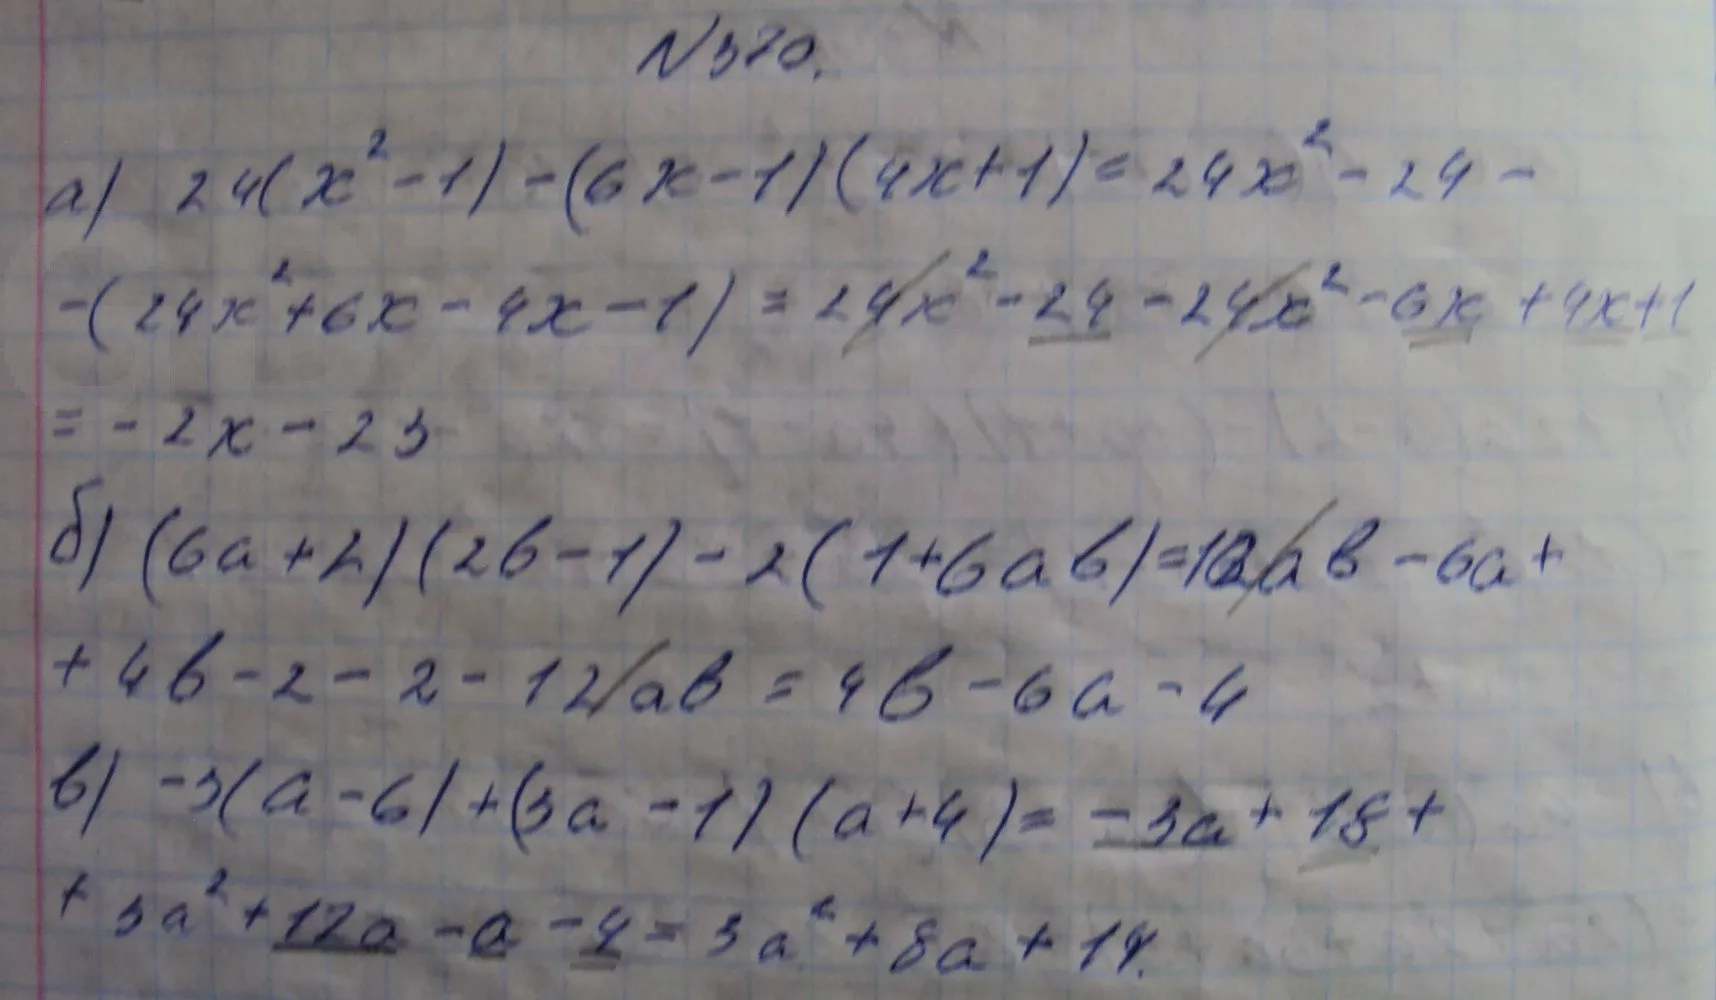 N370.
а) 24(x² - 1) - (6x - 1)(4x + 1) = 24x² - 24 -
- (24x² + 6x - 4x - 1) = 24x² - 24 - 24x² - 6x + 4x + 1
= - 2x - 23
б) (6a + 2)(2b - 1) - 2(1 + 6ab) = 12ab - 6a +
+ 4b - 2 - 2 - 12ab = 4b - 6a - 4
в) -3(a - 6) + (3a - 1)(a + 4) = -3a + 18 +
+ 3a² + 12a - a - 4 = 3a² + 8a + 14.